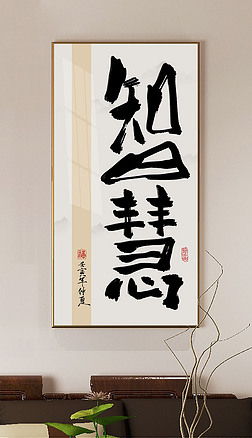 智慧
壬寅年仲夏